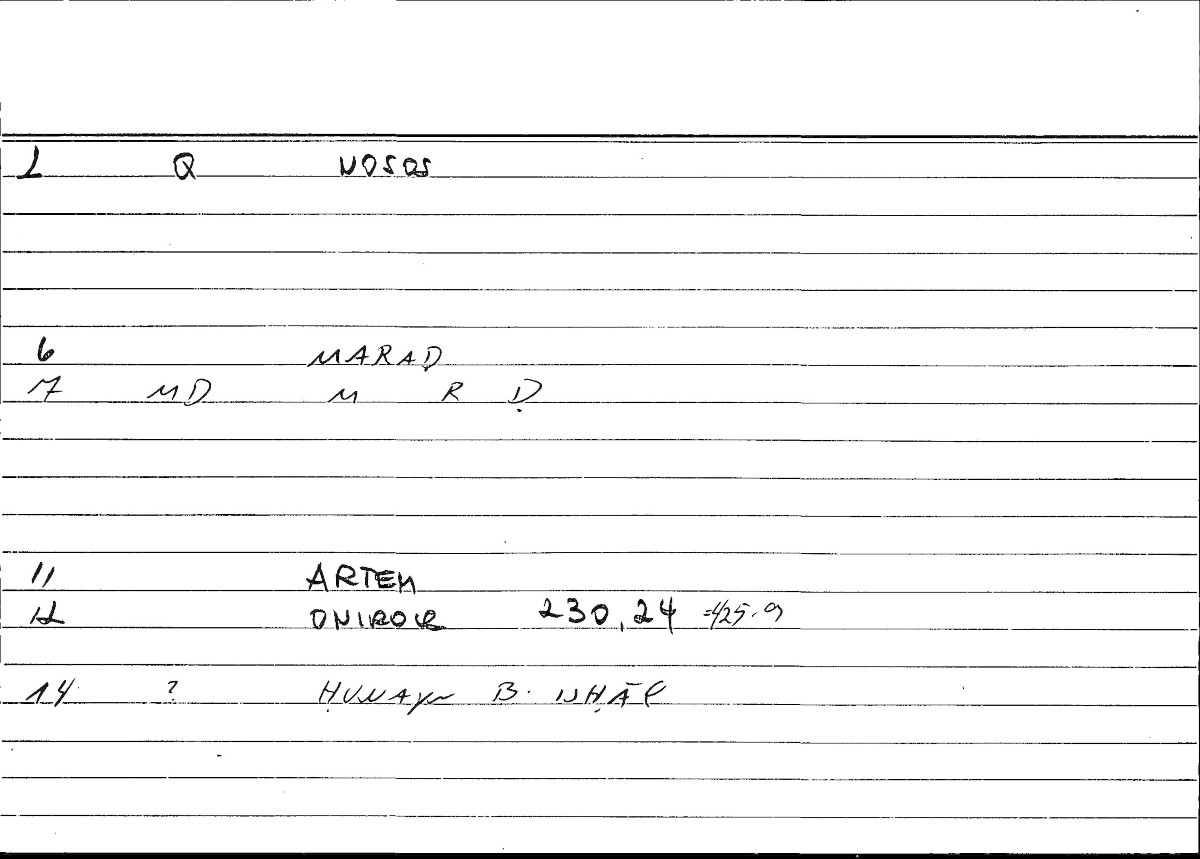 1 Q NOSOS
6 MARAD
7 MD M R Ḍ
11 ARTEM
12 ONIROCR 230,24 =425.9
14 ? ḤUNAYN B. ISḤĀQ